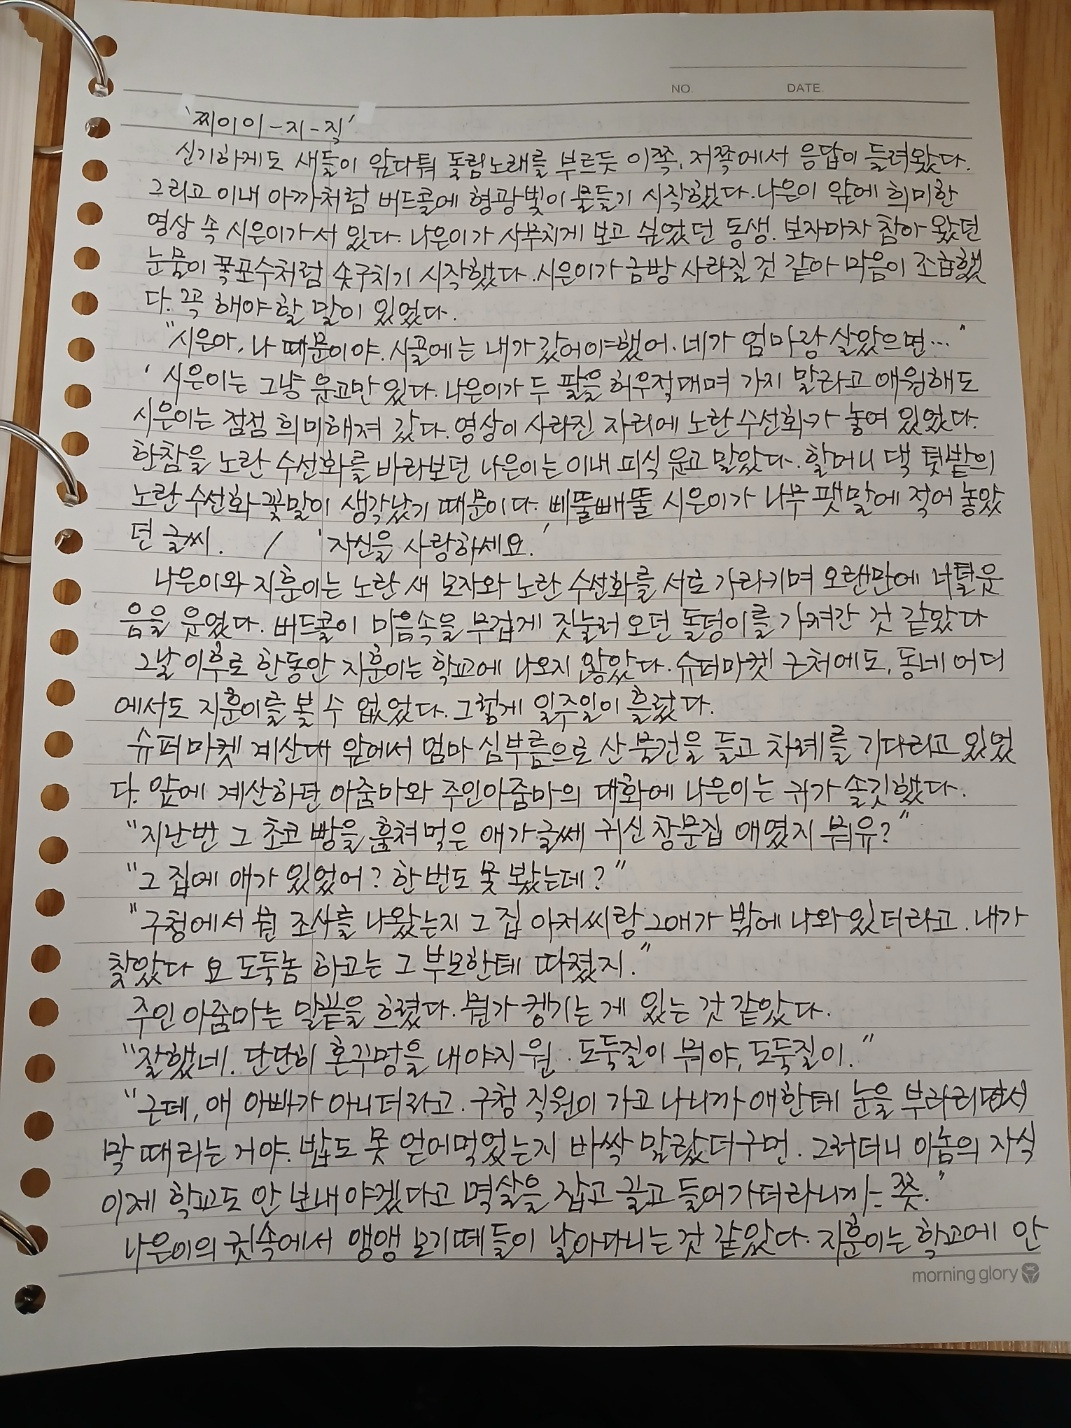 NO. DATE.
'찌이이-지-직'
신기하게도 새들이 앞다퉈 돌림노래를 부르듯 이쪽, 저쪽에서 응답이 들려왔다.
그리고 이내 아까처럼 버드콜에 형광빛이 물들기 시작했다. 나은이 앞에 희미한
영상 속 시은이가 서 있다. 나은이가 사무치게 보고 싶었던 동생. 보자마자 참아 왔던
눈물이 폭포수처럼 솟구치기 시작했다. 시은이가 금방 사라질 것 같아 마음이 조급했
다. 꼭 해야 할 말이 있었다.
"시은아, 나 때문이야. 시골에는 내가 갔어야했어. 네가 엄마랑 살았으면…"
' 시은이는 그냥 웃고만 있다. 나은이가 두 팔을 허우적대며 가지 말라고 애원해도
시은이는 점점 희미해져 갔다. 영상이 사라진 자리에 노란 수선화가 놓여 있었다.
한참을 노란 수선화를 바라보던 나은이는 이내 피식 웃고 말았다. 할머니 댁 텃밭의
노란 수선화 꽃말이 생각났기 때문이다. 삐뚤빼뚤 시은이가 나무 팻말에 적어 놓았
던 글씨. / '자신을 사랑하세요.'
나은이와 지훈이는 노란 새 모자와 노란 수선화를 서로 가리키며 오랜만에 너털웃
음을 웃었다. 버드콜이 마음속을 무겁게 짓눌러 오던 돌덩이를 가져간 것 같았다
그날 이후로 한동안 지훈이는 학교에 나오지 않았다. 슈퍼마켓 근처에도, 동네 어디
에서도 지훈이를 볼 수 없었다. 그렇게 일주일이 흘렀다.
슈퍼마켓 계산대 앞에서 엄마 심부름으로 산 물건을 들고 차례를 기다리고 있었
다. 앞에 계산하던 아줌마와 주인아줌마의 대화에 나은이는 귀가 솔깃했다.
"지난번 그 초코 빵을 훔쳐먹은 애가 글쎄 귀신 창문집 애였지 뭐유?"
"그 집에 애가 있었어? 한 번도 못 봤는데?"
"구청에서 뭔 조사를 나왔는지 그 집 아저씨랑 그애가 밖에 나와 있더라고. 내가
찾았다 요 도둑놈 하고는 그 부모한테 따졌지."
주인 아줌마는 말끝을 흐렸다. 뭔가 켕기는 게 있는 것 같았다.
"잘했네. 단단히 혼꾸멍을 내야지 원. 도둑질이 뭐야, 도둑질이."
"근데, 애 아빠가 아니더라고. 구청 직원이 가고 나니까 애한테 눈을 부라리면서
막 때리는 거야. 밥도 못 얻어먹었는지 바싹 말랐더구먼. 그러더니 이놈의 자식
이제 학교도 안 보내야겠다고 멱살을 잡고 끌고 들어가더라니까= 쯧."
나은이의 귓속에서 앵앵 모기떼들이 날아다니는 것 같았다. 지훈이는 학교에 안
morning glory